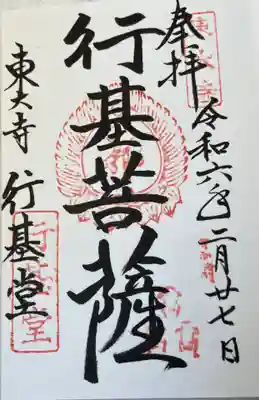 奉拝
令和六年二月廿七日
行基菩薩
東大寺
行基堂